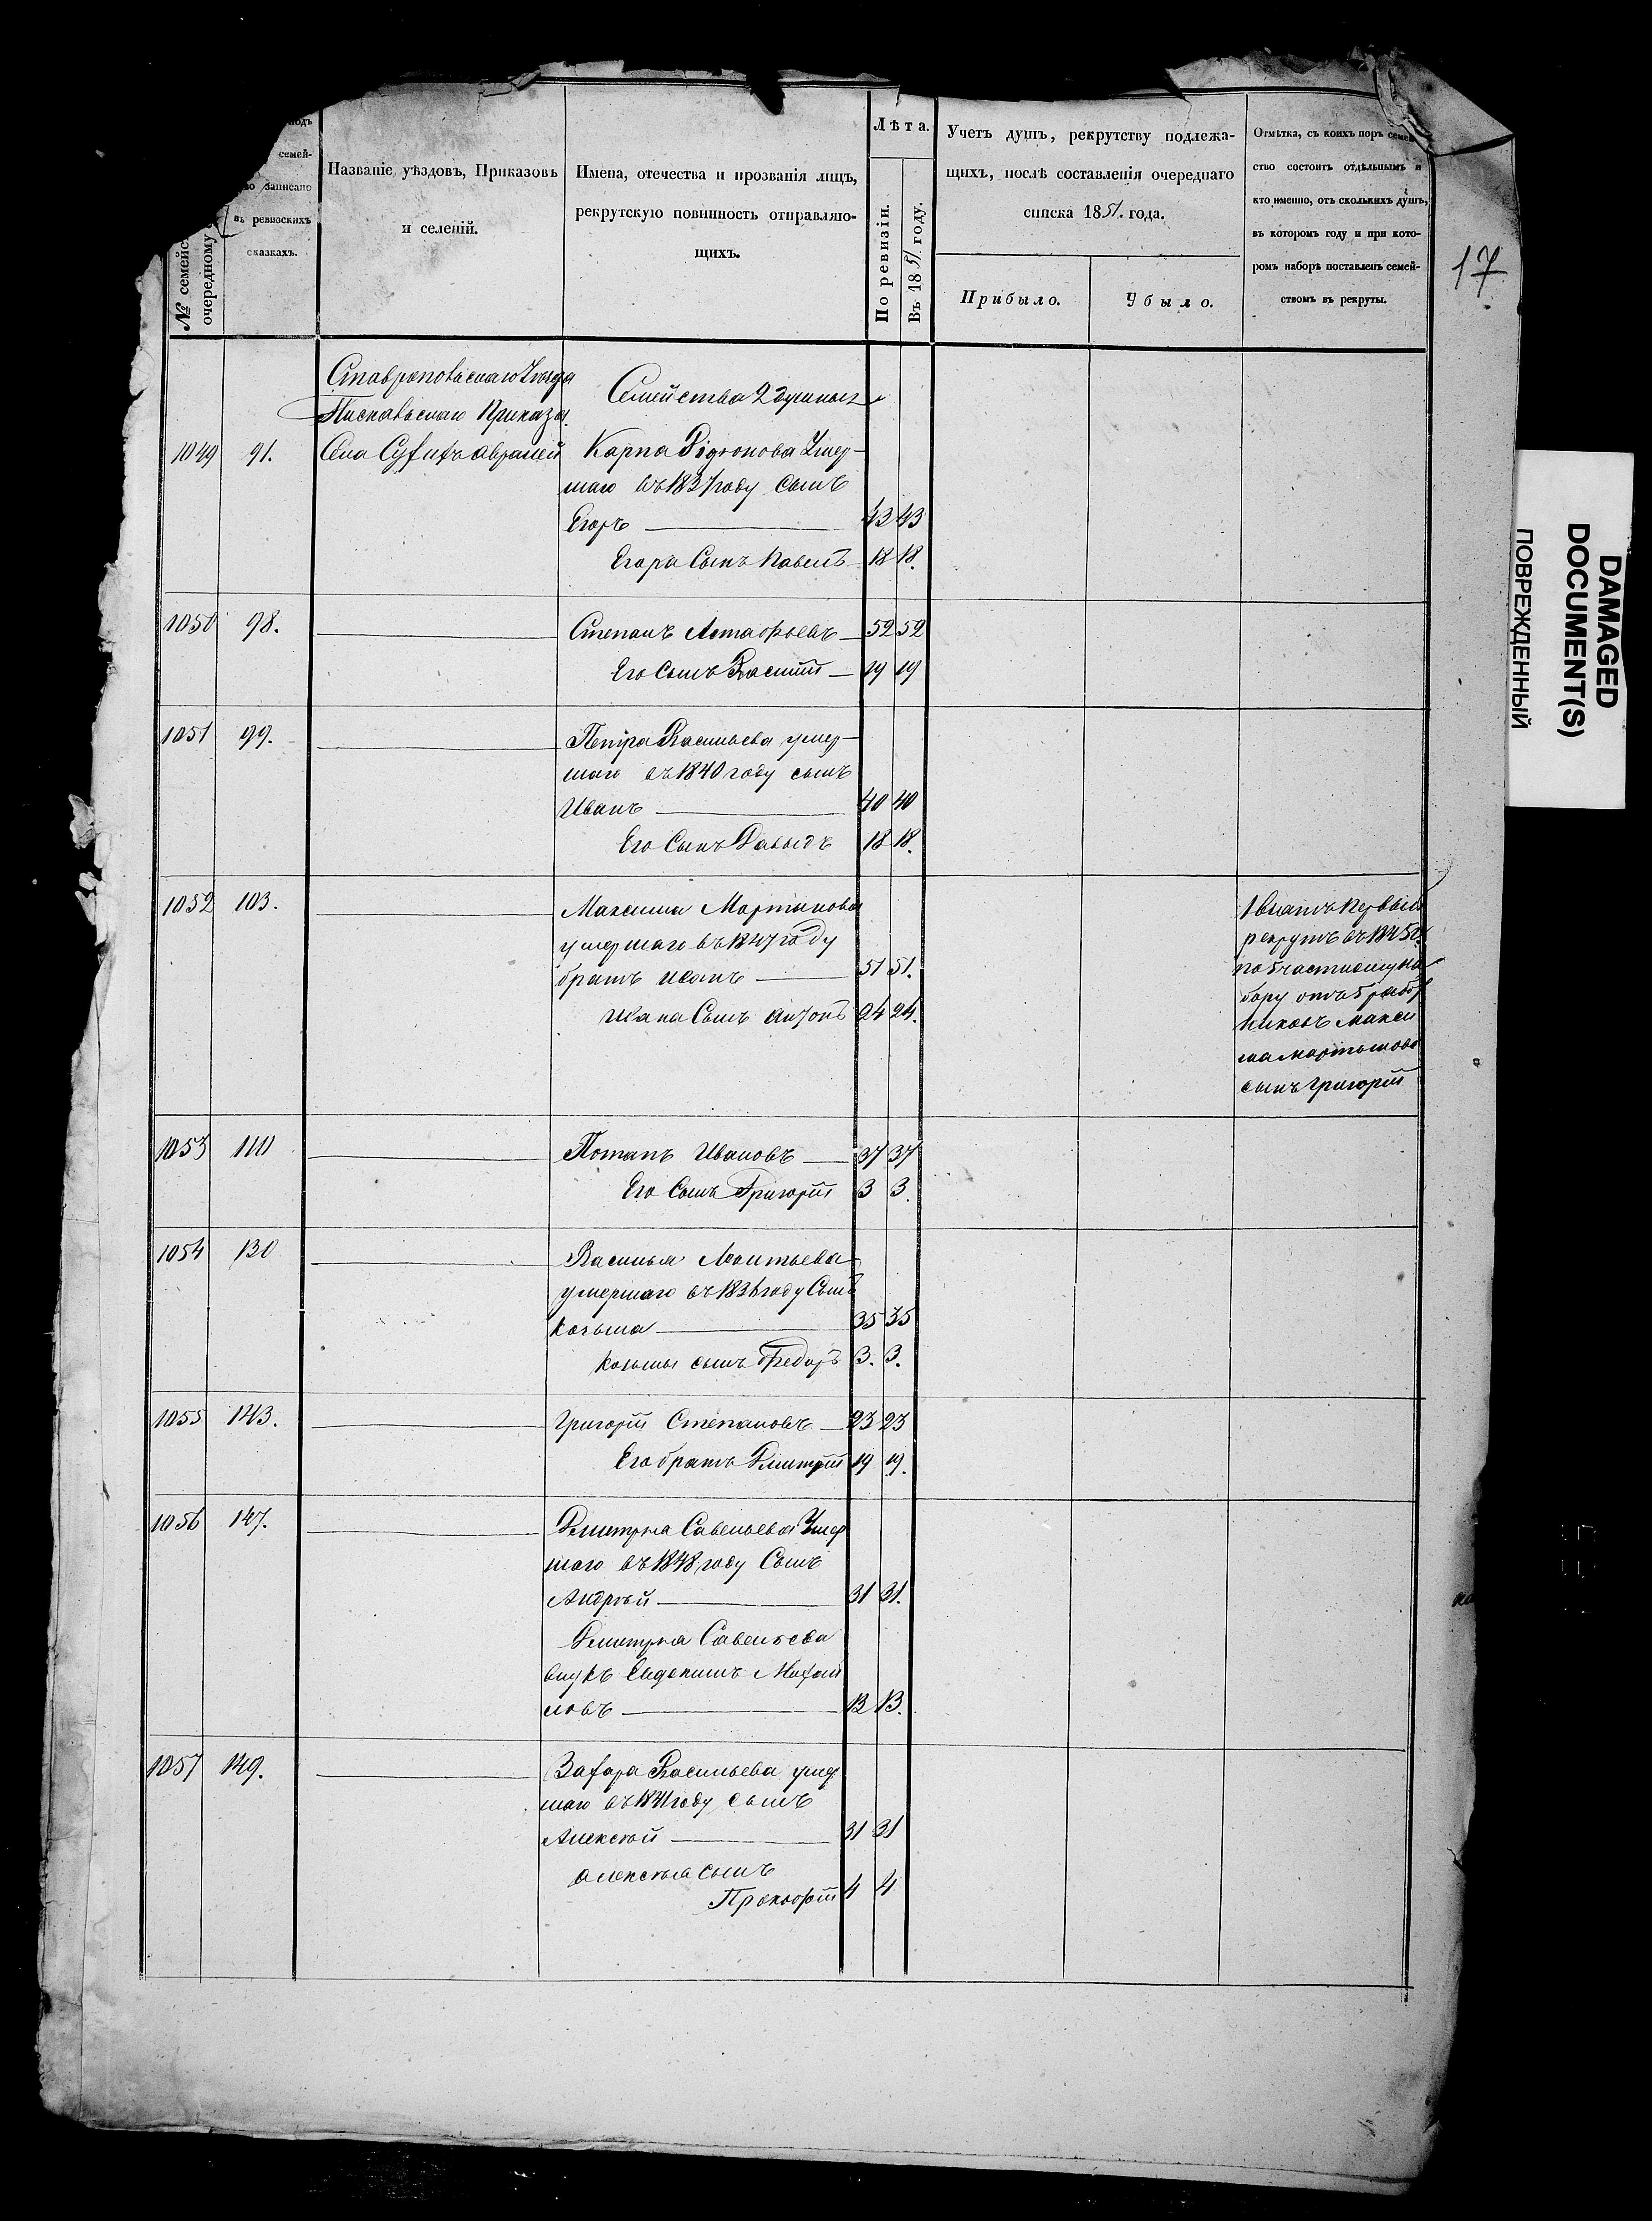 17
№ семейс
очередному
подъ
семей-
во записано
въ ревизскихъ
сказкахъ.
Названіе уѣздовъ, Приказовъ
и селеній.
Имена, отечества и прозванія лицъ,
рекрутскую повинность отправляю-
щихъ.
Лѣта.
По ревизіи.
Въ 1851 году.
Учетъ душъ, рекрутству подлежа-
щихъ, послѣ составленія очереднаго
списка 1851. года.
Прибыло.
Убыло.
Отмѣтка, съ коихъ поръ семей
ство состоитъ отдѣльнымъ и
кто именно, отъ сколькихъ душъ,
въ которомъ году и при кото-
ромъ наборѣ поставленъ семей-
ствомъ въ рекруты.
Ставропольскаго Уѣзда
Семейства 2 душныя
Приказа.
1049 91. Села Карпа Умер-
шаго въ 1837 году сынъ
Егоръ 43 43
Егора Сынъ Павелъ 18 18.
1050 98. Степанъ Астафьевъ 52 52
Его Сынъ Василій 19 19
1051 99. Петра Васильева умер-
шаго въ 1840 году сынъ
Иванъ 40 40
Его Сынъ Давыдъ 18 18.
1052 103. Максима Мартынова
умершаго въ 1847 году
братъ Иванъ 51 51.
Ивана Сынъ Антонъ 24 24.
рекрутъ въ 1845 г.
по 5 частному на
бору отъ 5 работ
никовъ Макси
ма Мартынова
сынъ Григорій
1053 110 Потапъ Ивановъ 37 37
Его Сынъ Григорій 3 3.
1054 130 Василья Леонтьева
умершаго въ 1836 году Сынъ
Козьма 35 35
Козьмы сынъ Федоръ 3. 3.
1055 143. Григорій Степановъ 23 23
Его братъ Дмитрій 19 19.
1056 147. Дмитрія Савельева Умер
шаго въ 1848 году Сынъ
Андрѣй 31 31.
Дмитрія Савельева
внукъ Евдокимъ Михай
ловъ 13 13.
1057 149. Захара Васильева умер
шаго въ 1841 году сынъ
Алексѣй 31 31
Алексѣя сынъ
Прокофій 4 4
DAMAGED
DOCUMENT(S)
ПОВРЕЖДЕННЫЙ